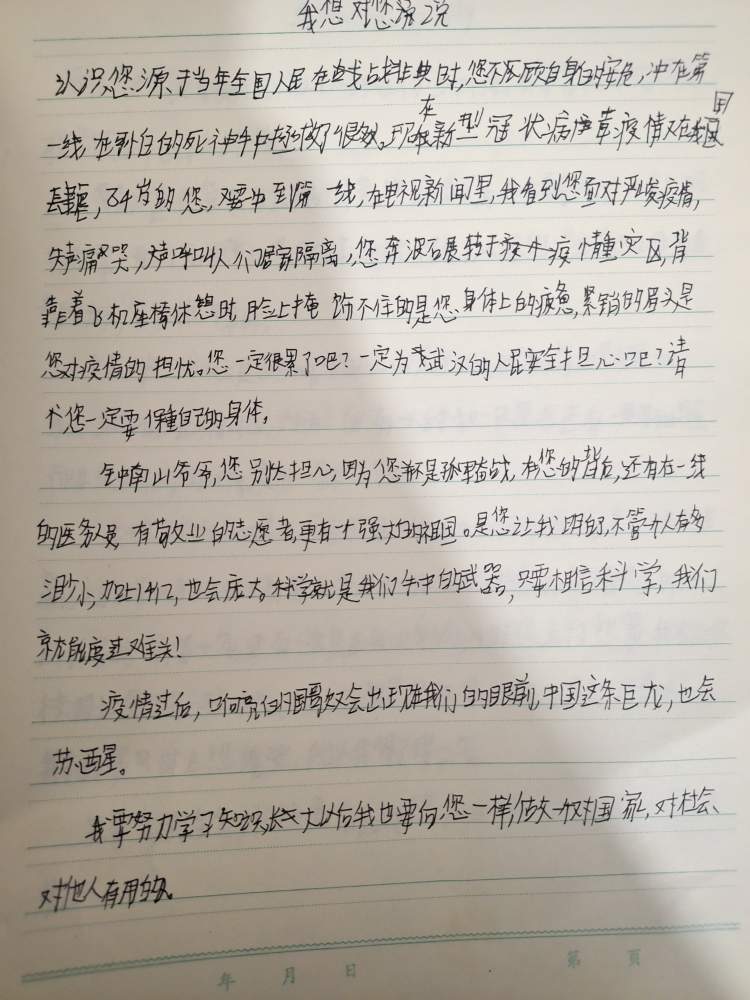 我想对您说
认识您源于当年全国人民在抗战非典时,您不顾自身的安危,冲在第
一线,在的死神手中拯救了很多人。现在新型冠状病毒疫情又在我国
肆虐,84岁的您,又要冲到第一线,在电视新闻里,我看到您面对严峻疫情,
失声痛哭,大声呼叫人们居家隔离,您奔波辗转于疫情重灾区,背
靠着飞机座椅休憩时,脸上掩饰不住的是您身体上的疲惫,紧锁的眉头是
您对疫情的担忧。您一定很累了吧?一定为武汉的人民安全担心吧?请
您一定要保重自己的身体。
钟南山爷爷,您别太担心,因为您不是孤军奋战,在您的背后,还有在一线
的医务人员,有敬业的志愿者,更有个强大的祖国。是您让我明白了,不管个人有多
渺小,加上14亿,也会庞大。科学就是我们手中的武器,只要相信科学,我们
就能度过难关!
疫情过后,响亮的国歌会出现在我们的眼前,中国这条巨龙,也会
苏醒。
我要努力学习知识,长大以后我也要向您一样,做一个对国家,对社会、
对他人有用的人。
年 月 日 第 頁